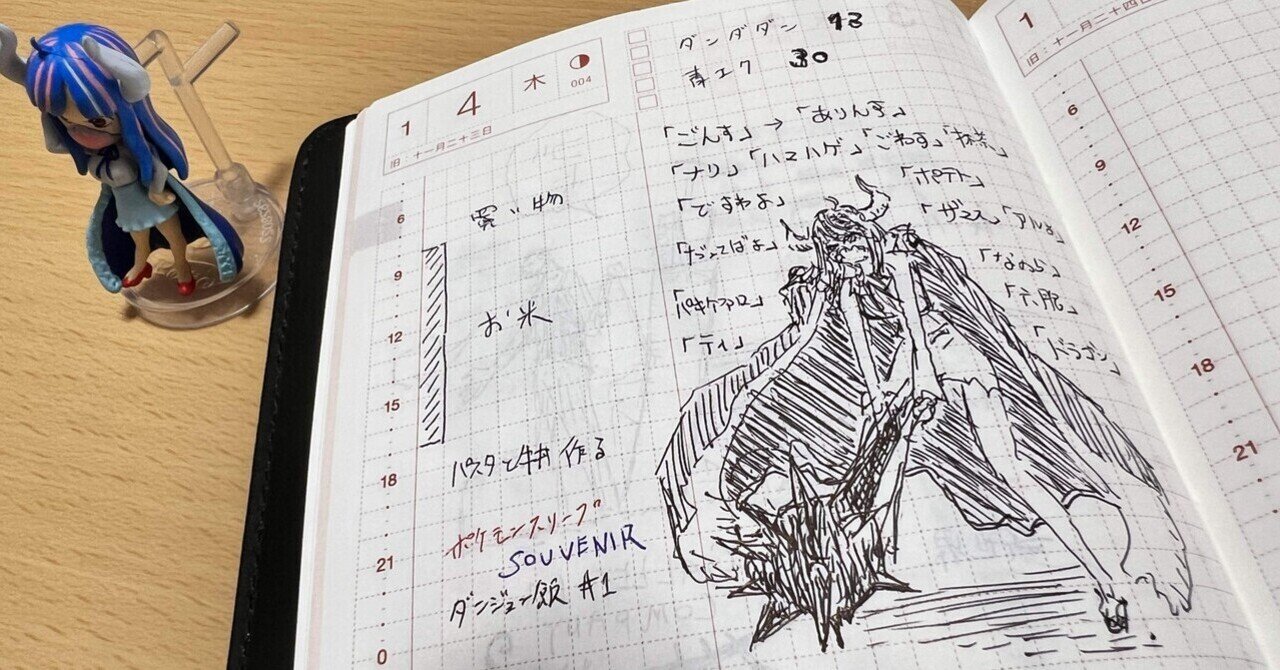 1
4
木
004
旧:十一月二十三日
6
9
12
15
18
21
0
買い物
お米
パスタと牛丼 作る
ポケモンスリープ
SOUVENIR
ダンジョン飯 #1
ダンダダン 13
青エク 30
「ごんす」→「ありんす」
「ナリ」「ハマハゲ」「ごわす」「抹茶」
「ですわよ」「ポテト」
「ザマス」「アルよ」
「だってばよ」「なのら」
「パキケファロ」「デ、服」
「ティ」「ドラゴン」
1
旧:十一月二十四日
6
9
12
15
18
21